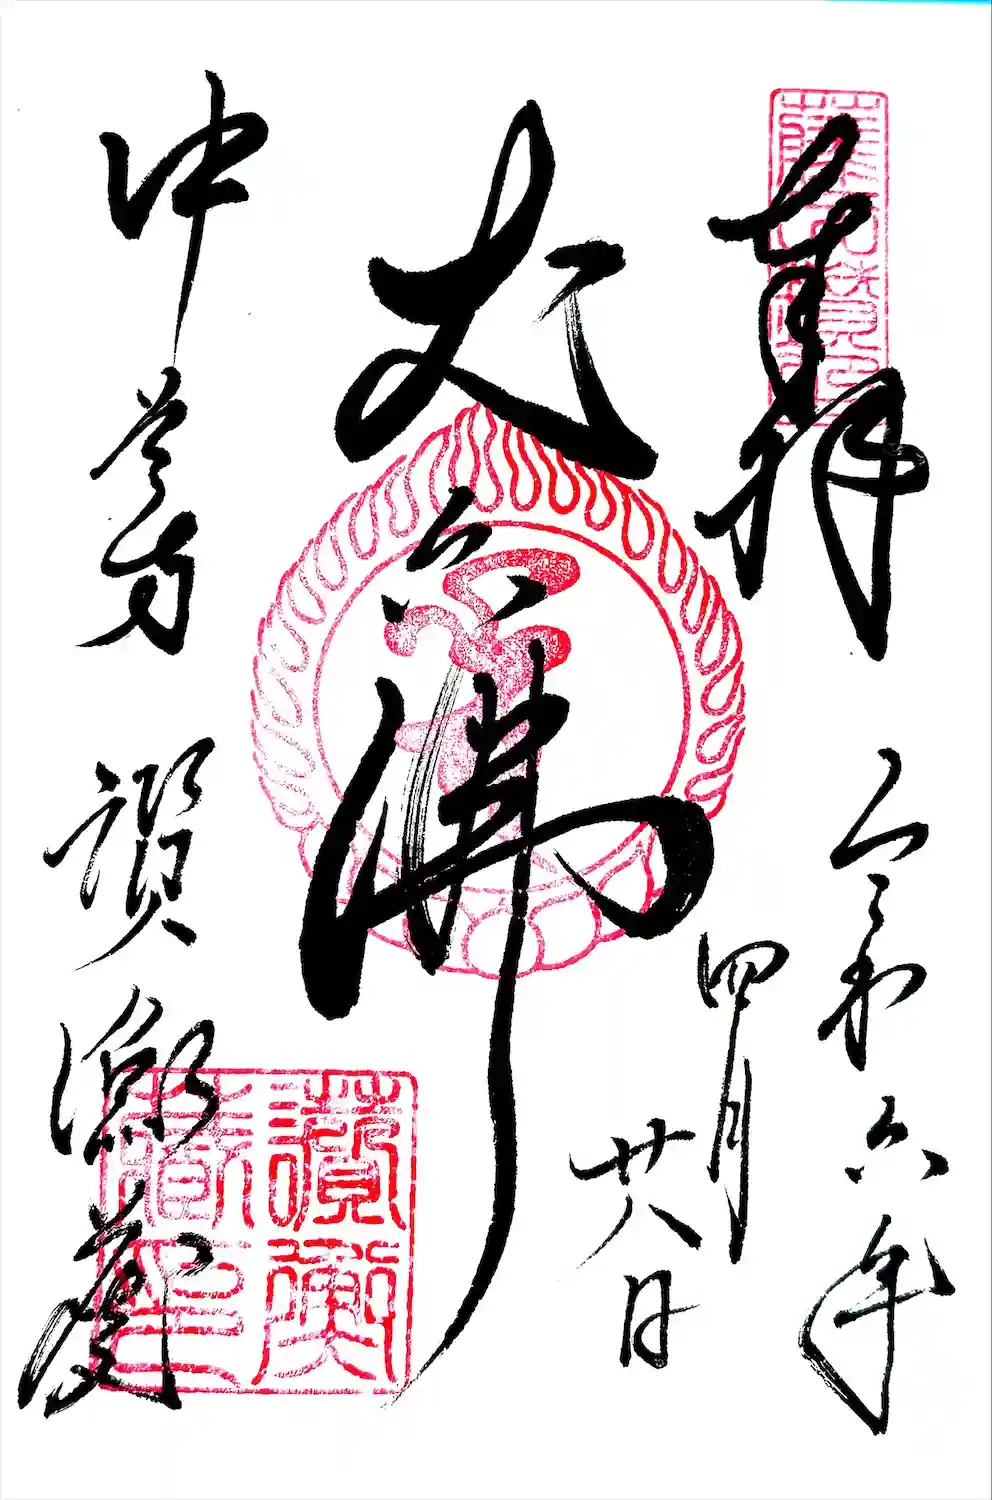 奉拝
令和六年
四月廿八日
丈六佛
中尊寺
讃衡蔵
讃衡蔵印